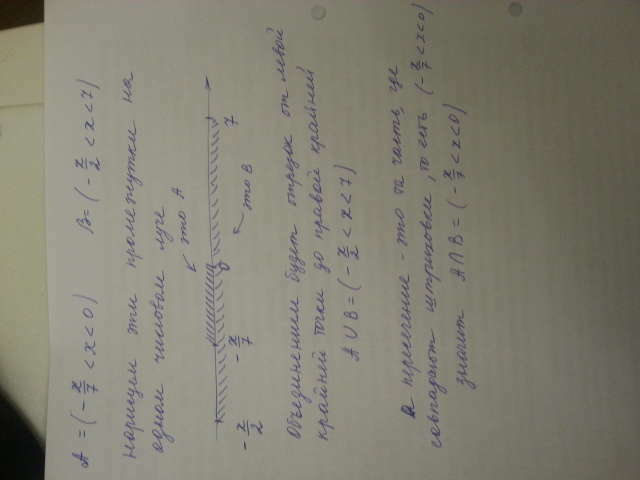 A = (-π/7 < x < 0)    B = (-π/2 < x < 7)
Нарисуем эти промежутки на
одном числовом луче
это A
-π/2    -π/7    0    7
это B
Объединением будет отрезок от левой
крайней точки до правой крайней
A ∪ B = (-π/2 < x < 7)
а пересечение - это та часть, где
совпадают штриховки, то есть (-π/7 < x < 0)
значит A ∩ B = (-π/7 < x < 0)